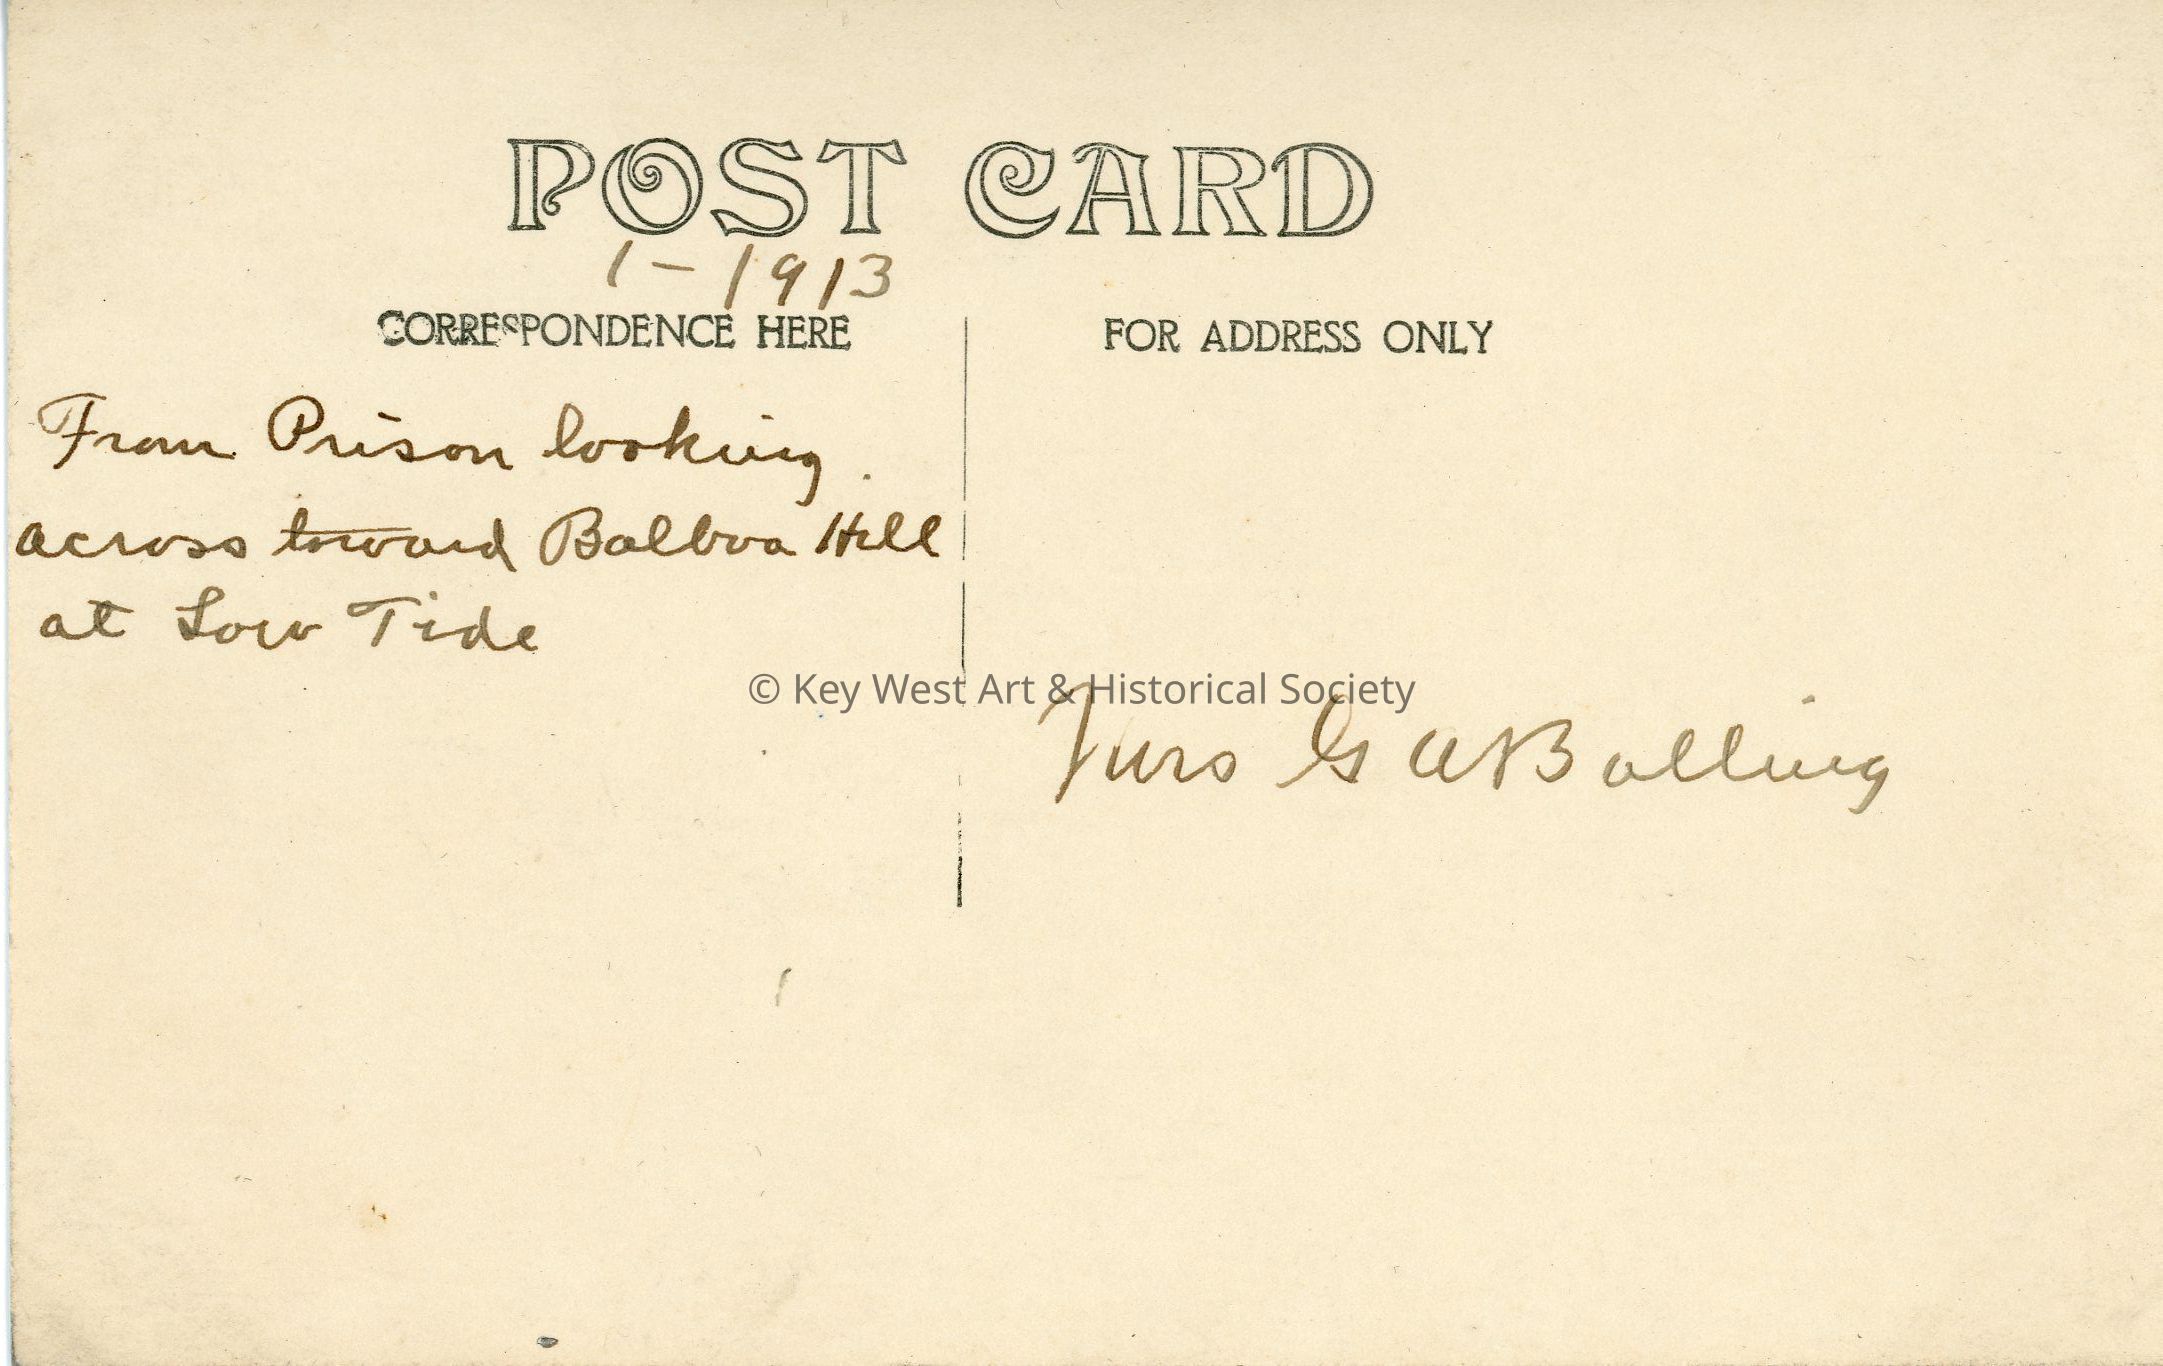 POST CARD
1-1913
CORRESPONDENCE HERE
FOR ADDRESS ONLY
From Prison looking
across toward Balboa Hill
at Low Tide
© Key West Art & Historical Society
Mrs G W Bolling